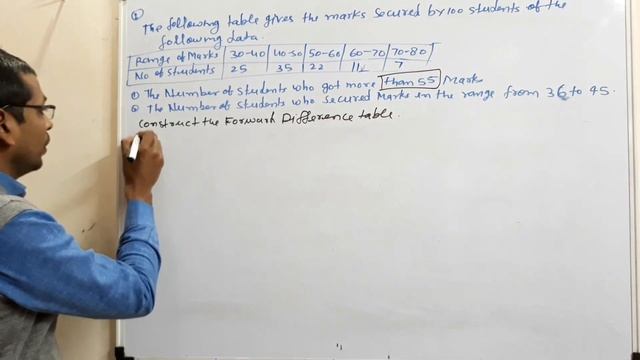 ①
The following table gives the marks secured by 100 students of the
following data.
Range of Marks 30-40 40-50 50-60 60-70 70-80
No of Students 25 35 22 11 7
① The Number of students who got more than 55 Marks
② The Number of students who secured Marks in the range from 36 to 45.
Construct the Forward Difference table.